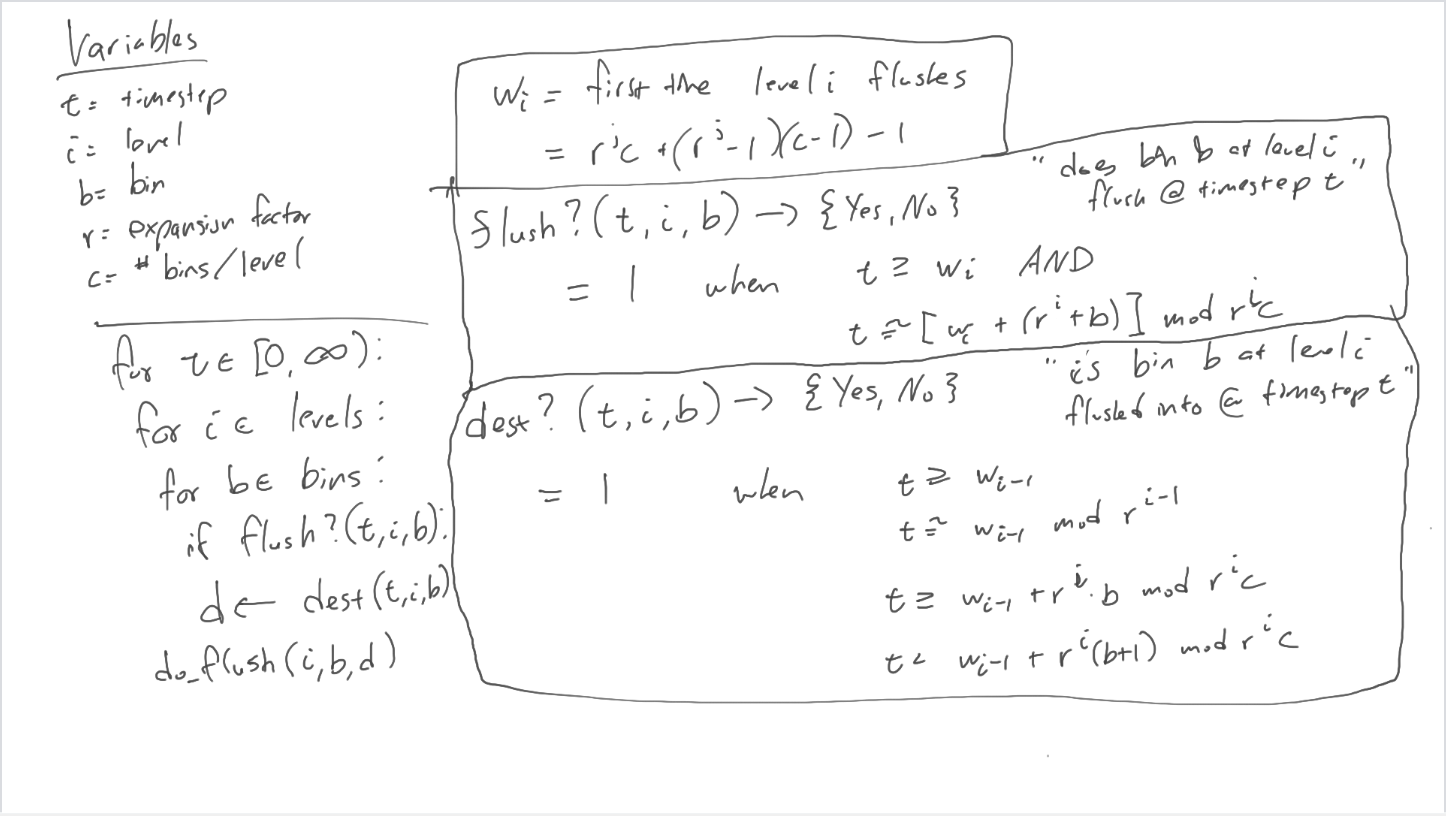 Variables
t = timestep
i = level
b = bin
r = expansion factor
c = # bins/level
for t ∈ [0, ∞):
for i ∈ levels:
for b ∈ bins:
if flush?(t,i,b):
d ← dest(t,i,b)
do_flush(i,b,d)
w_i = first time level i flushes
= r^i c + (r^i - 1)(c-1) - 1
flush?(t,i,b) → {Yes, No}
"does bin b at level i
flush @ timestep t"
= 1 when t ≥ w_i AND
t ≅ [w_i + (r^i + b)] mod r^i c
dest?(t,i,b) → {Yes, No}
"is bin b at level i
flushed into @ timestep t"
= 1 when t ≥ w_{i-1}
t ≅ w_{i-1} mod r^{i-1}
t ≥ w_{i-1} + r^i · b mod r^i c
t < w_{i-1} + r^i (b+1) mod r^i c